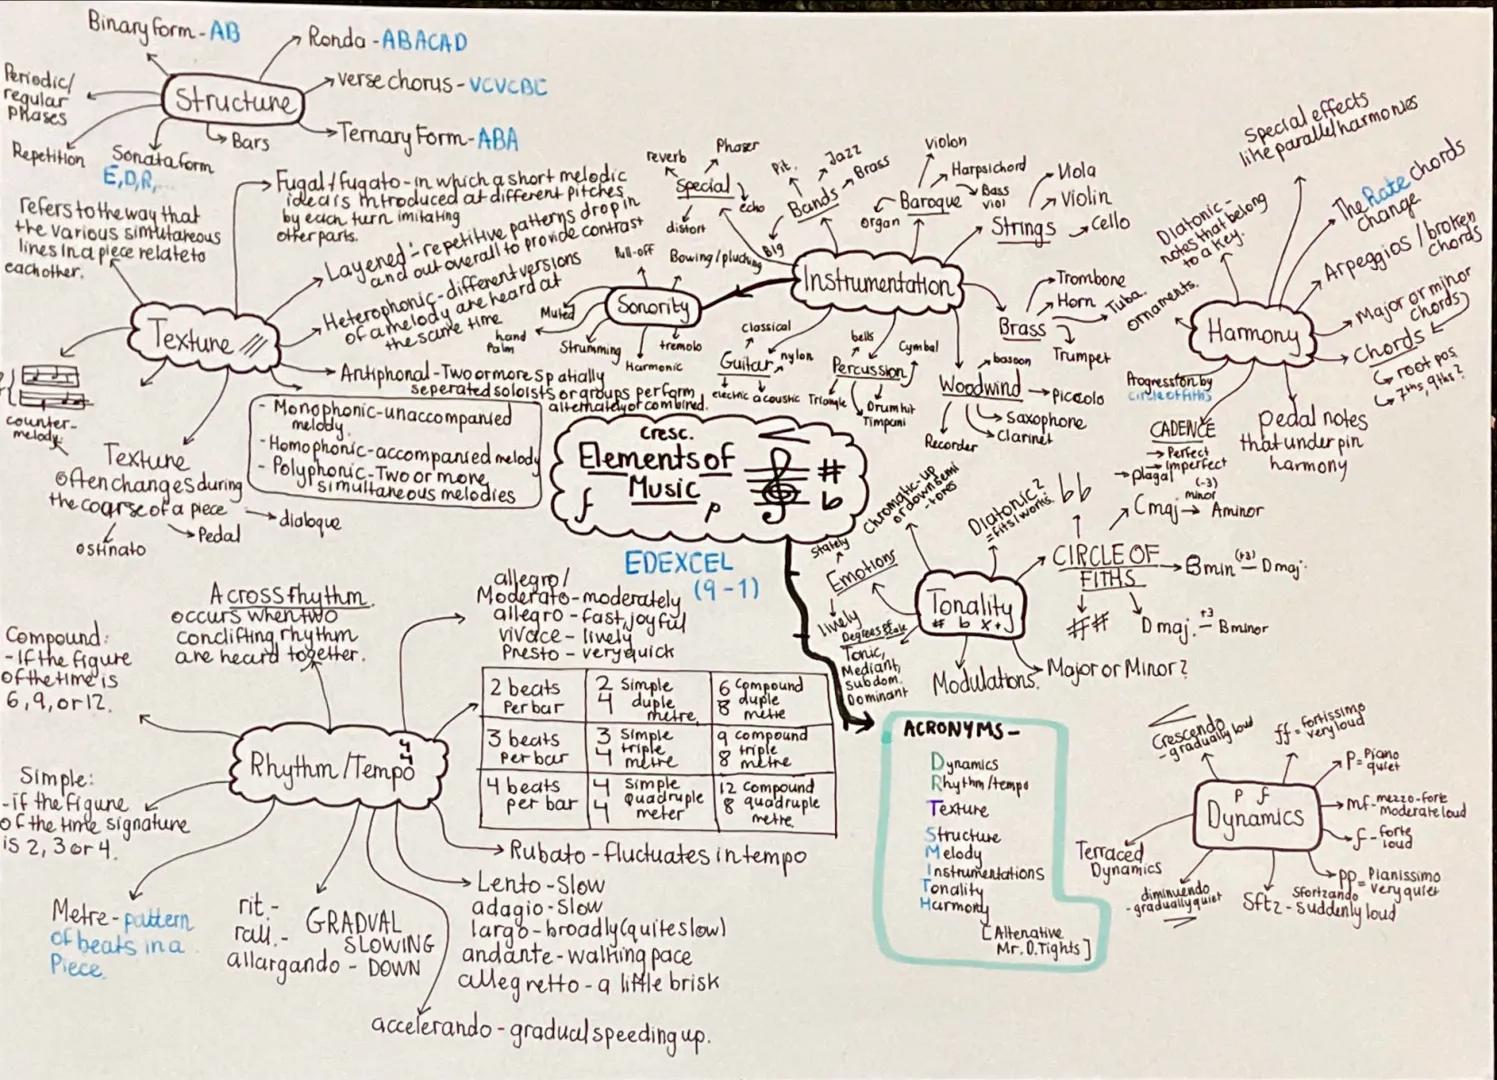 Binary form - AB
Ronda - ABACAD
verse chorus - VCVCBC
Ternary Form - ABA
Structure
Periodic/
regular
phases
Repetition
Sonata form
E,D,R,
Bars
refers to the way that
the various simultaneous
lines in a piece relate to
each other.
Fugal/fugato - in which a short melodic
idea is introduced at different pitches
by each turn imitating
other parts.
Layered - repetitive patterns drop in
and out overall to provide contrast
Heterophonic - different versions
of a melody are heard at
the same time
Antiphonal - Two or more spatially
seperated soloists or groups perform
alternately or combined.
Texture
counter-
melody
- Monophonic - unaccompanied
melody.
- Homophonic - accompanied melody
- Polyphonic - Two or more
simultaneous melodies
Texture
often changes during
the coarse of a piece
ostinato
Pedal
dialogue
reverb
Phaser
Special
echo
distort
Pit.
Jazz
Brass
Bands
Big
violon
Harpsichord
Bass
viol
Baroque
organ
Viola
Violin
Cello
Strings
Instrumentation
Pull-off
Bowing/plucking
Sonority
Muted
hand
Palm
Strumming
Harmonic
tremolo
Classical
Guitar
nylon
electric
acoustic
bells
Percussion
Cymbal
Triangle
Drum kit
Timpani
Trombone
Horn
Tuba
Brass
Trumpet
bassoon
Woodwind
Piccolo
Saxophone
Clarinet
Recorder
Special effects
like parallel harmonies
The Rate chords
change
Arpeggios/broken
chords
Major or minor
chords
Chords
root pos.
7ths, 9ths?
Diatonic -
notes that belong
to a key.
ornaments.
Harmony
Progression by
circle of fiths
CADENCE
Perfect
Imperfect
plagal
Pedal notes
that under pin
harmony
cresc.
Elements of
Music
f
p
# b
EDEXCEL
(9-1)
Chromatic - up
or down semi
- tones
Diatonic?
= fits/works.
bb
(-3)
minor
Cmaj → Aminor
CIRCLE OF
FITHS
Bmin (+3) Dmaj.
##
Dmaj. +3 Bminor
Stately
Emotions
lively
Tonality
# b x +
Degrees of scale
Tonic,
Mediant,
subdom.
Dominant
Modulations.
Major or Minor?
A Cross rhythm
occurs when two
conclifting rhythm
are heard together.
Compound:
- If the figure
of the time is
6, 9, or 12.
Simple:
- if the figure
of the time signature
is 2, 3 or 4.
Rhythm/Tempo 4
4
allegro/
Moderato - moderately
allegro - fast, joyful
vivace - lively
Presto - very quick
2 beats
Per bar
2 Simple
4 duple
metre
6 Compound
8 duple
metre
3 beats
per bar
3 Simple
4 triple
metre
9 compound
8 triple
metre
4 beats
per bar
4 Simple
4 quadruple
meter
12 Compound
8 quadruple
metre.
Rubato - fluctuates in tempo
Lento - Slow
adagio - slow
largo - broadly (quite slow)
andante - walking pace
allegretto - a little brisk
accelerando - gradual speeding up.
Metre - pattern
of beats in a
Piece.
rit. -
rall. -
allargando -
GRADUAL
SLOWING
DOWN
ACRONYMS -
Dynamics
Rhythm/tempo
Texture
Structure
Melody
Instrumentations
Tonality
Harmony
[Altenative
Mr. D. Tights]
Crescendo
- gradually loud
ff = fortissimo
very loud
P = Piano
quiet
mf - mezzo-forte
moderate loud
f - forte
loud
pp = Pianissimo
very quiet
p f
Dynamics
Terraced
Dynamics
diminuendo
- gradually quiet
Sfortzando
Sftz - suddenly loud